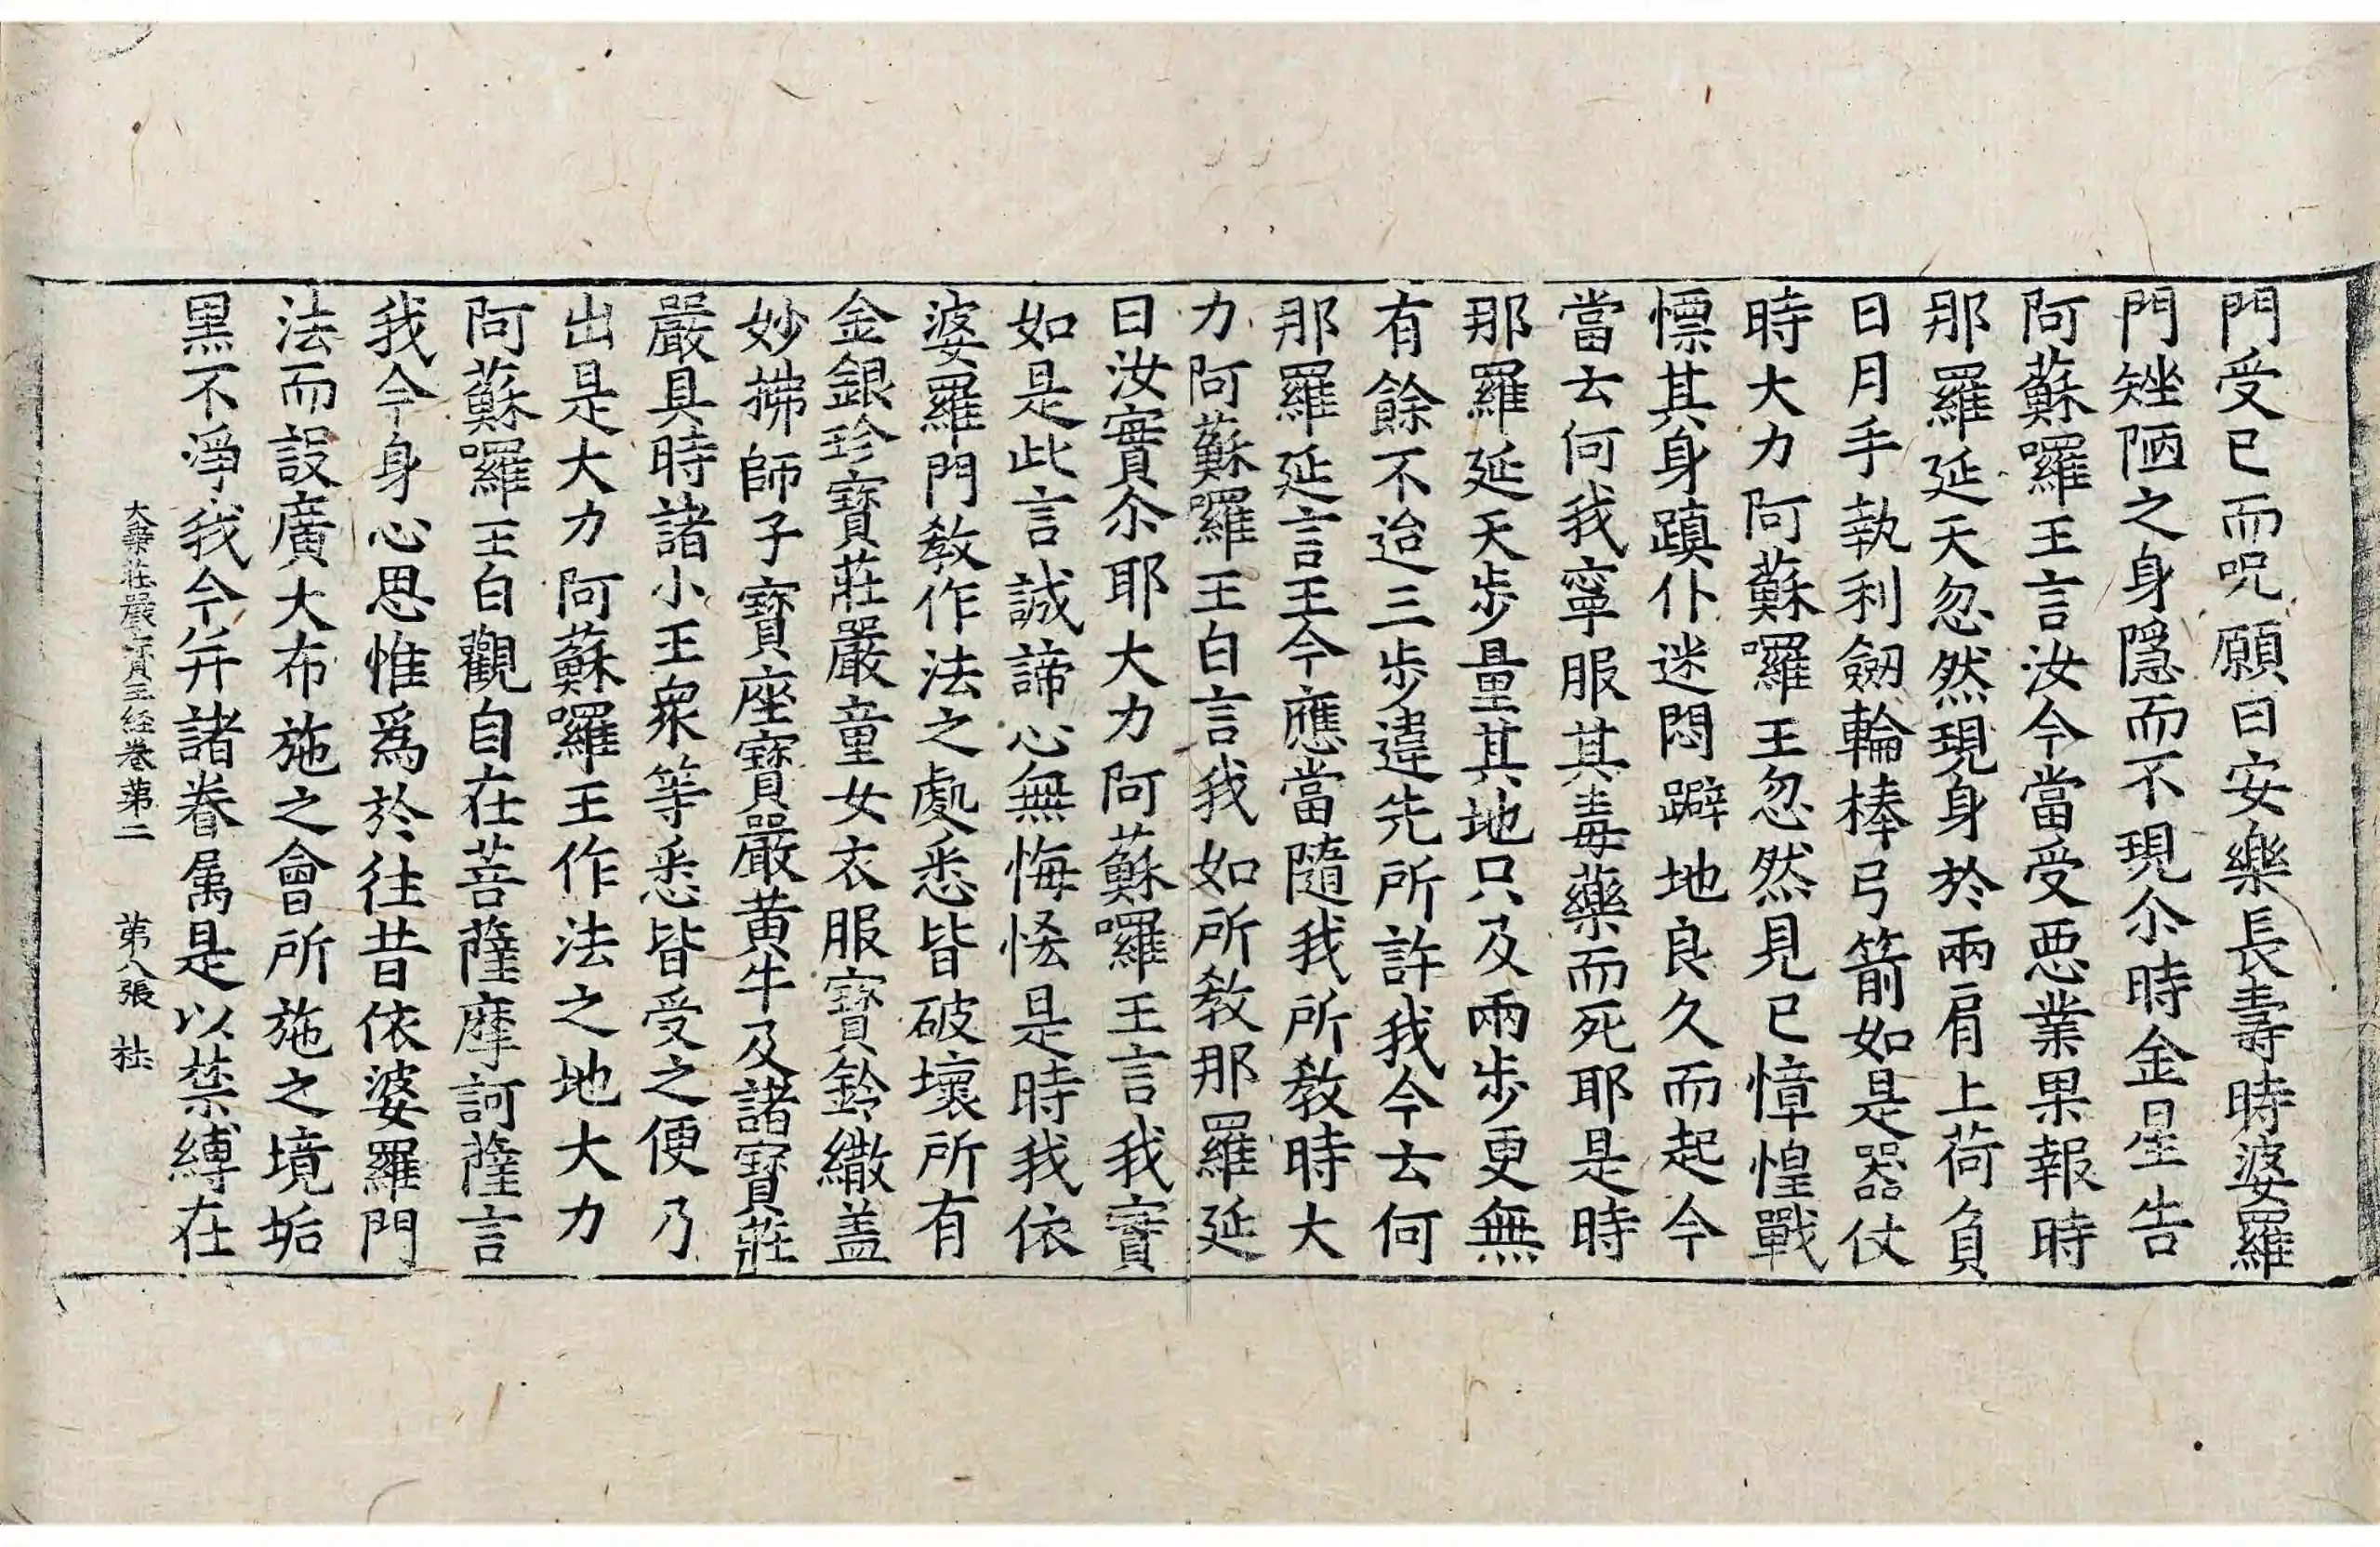 門受已而呪願曰安樂長壽時婆羅
門矬陋之身隱而不現尒時金星告
阿蘇囉王言汝今當受惡業果報時
那羅延天忽然現身於兩肩上荷負
日月手執利劒輪棒弓箭如是器仗
時大力阿蘇囉王忽然見已慞惶戰
慓其身蹎仆迷悶躃地良久而起今
當去何我寧服其毒藥而死耶是時
那羅延天步量其地只及兩步更無
有餘不迨三步違先所許我今去何
那羅延言王今應當隨我所教時大
力阿蘇囉王白言我如所教那羅延
曰汝實尒耶大力阿蘇囉王言我實
如是此言誠諦心無悔恡是時我依
婆羅門教作法之處悉皆破壞所有
金銀珍寶莊嚴童女衣服寶鈴繖盖
妙拂師子寶座寶嚴黃牛及諸寶莊
嚴具時諸小王衆等悉皆受之便乃
出是大力阿蘇囉王作法之地大力
阿蘇囉王白觀自在菩薩摩訶薩言
我今身心思惟爲於往昔依婆羅門
法而設廣大布施之會所施之境垢
黑不淨我今并諸眷属是以禁縛在
大乘莊嚴寶王経卷第二 第八張 社